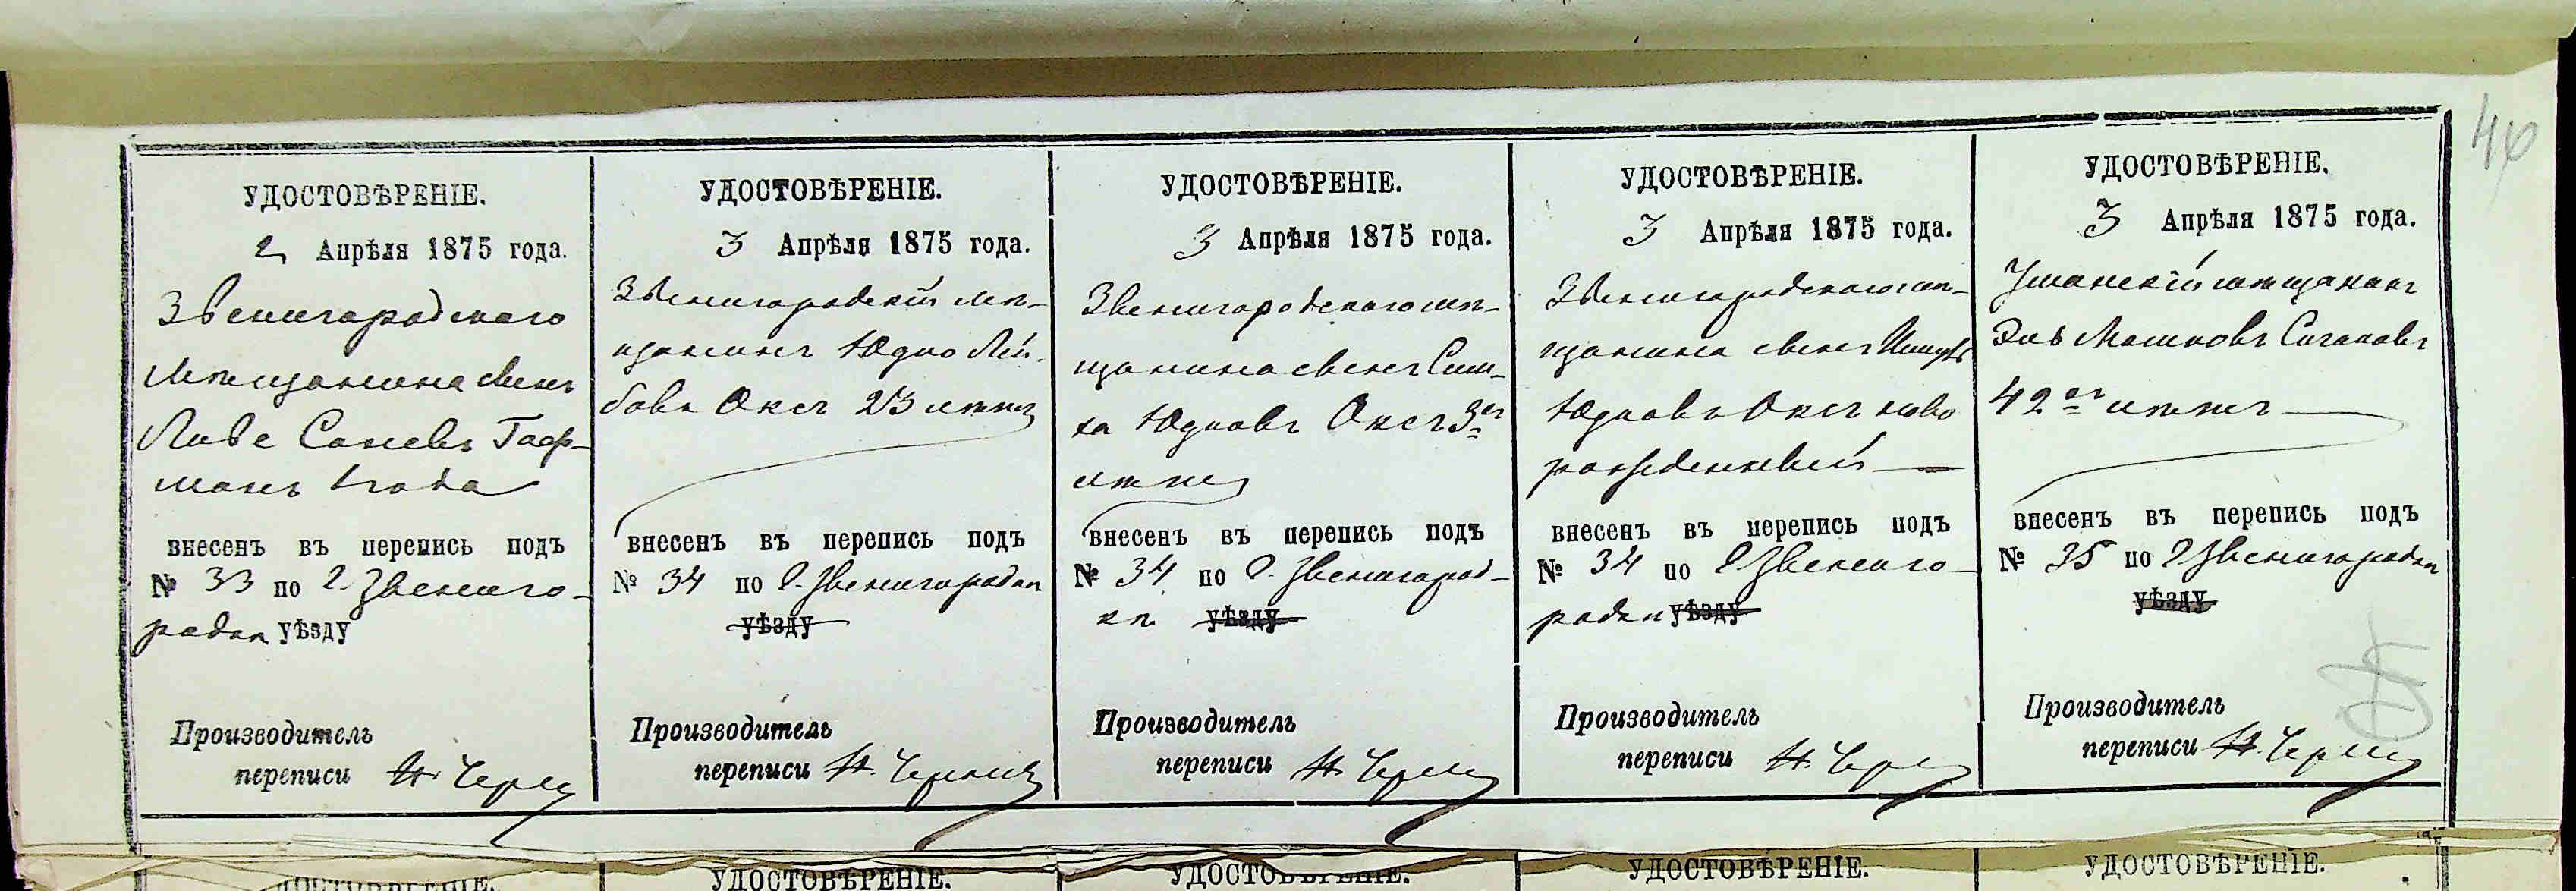 46
УДОСТОВѢРЕНІЕ.
2 Апрѣля 1875 года.
Звенигородскаго
мѣщанина сынъ
Саневъ Гоф-
манъ 1 года
внесенъ въ перепись подъ
№ 33 по г. Звениго-
родкѣ уѣзду
Производитель
переписи Н.
УДОСТОВѢРЕНІЕ.
3 Апрѣля 1875 года.
Звенигородскій мѣ-
щанинъ Юдко Лей-
бовъ Оксъ 23 лѣтъ
внесенъ въ перепись подъ
№ 34 по г. Звенигородкѣ
уѣзду
Производитель
переписи Н.
УДОСТОВѢРЕНІЕ.
3 Апрѣля 1875 года.
Звенигородскаго мѣ-
щанина сынъ Сим-
ха Юдковъ Оксъ 3хъ
лѣтъ
внесенъ въ перепись подъ
№ 34 по г. Звенигород-
кѣ уѣзду
Производитель
переписи Н.
УДОСТОВѢРЕНІЕ.
3 Апрѣля 1875 года.
Звенигородскаго мѣ-
щанина сынъ
Юдковъ Оксъ ново
рожденный
внесенъ въ перепись подъ
№ 34 по г. Звениго-
родкѣ уѣзду
Производитель
переписи Н.
УДОСТОВѢРЕНІЕ.
3 Апрѣля 1875 года.
Уманскій мѣщанинъ
Эль Мошковъ
42хъ лѣтъ
внесенъ въ перепись подъ
№ 35 по г. Звенигородкѣ
уѣзду
Производитель
переписи Н.
УДОСТОВѢРЕНІЕ.
УДОСТОВѢРЕНІЕ.
УДОСТОВѢРЕНІЕ.
УДОСТОВѢРЕНІЕ.